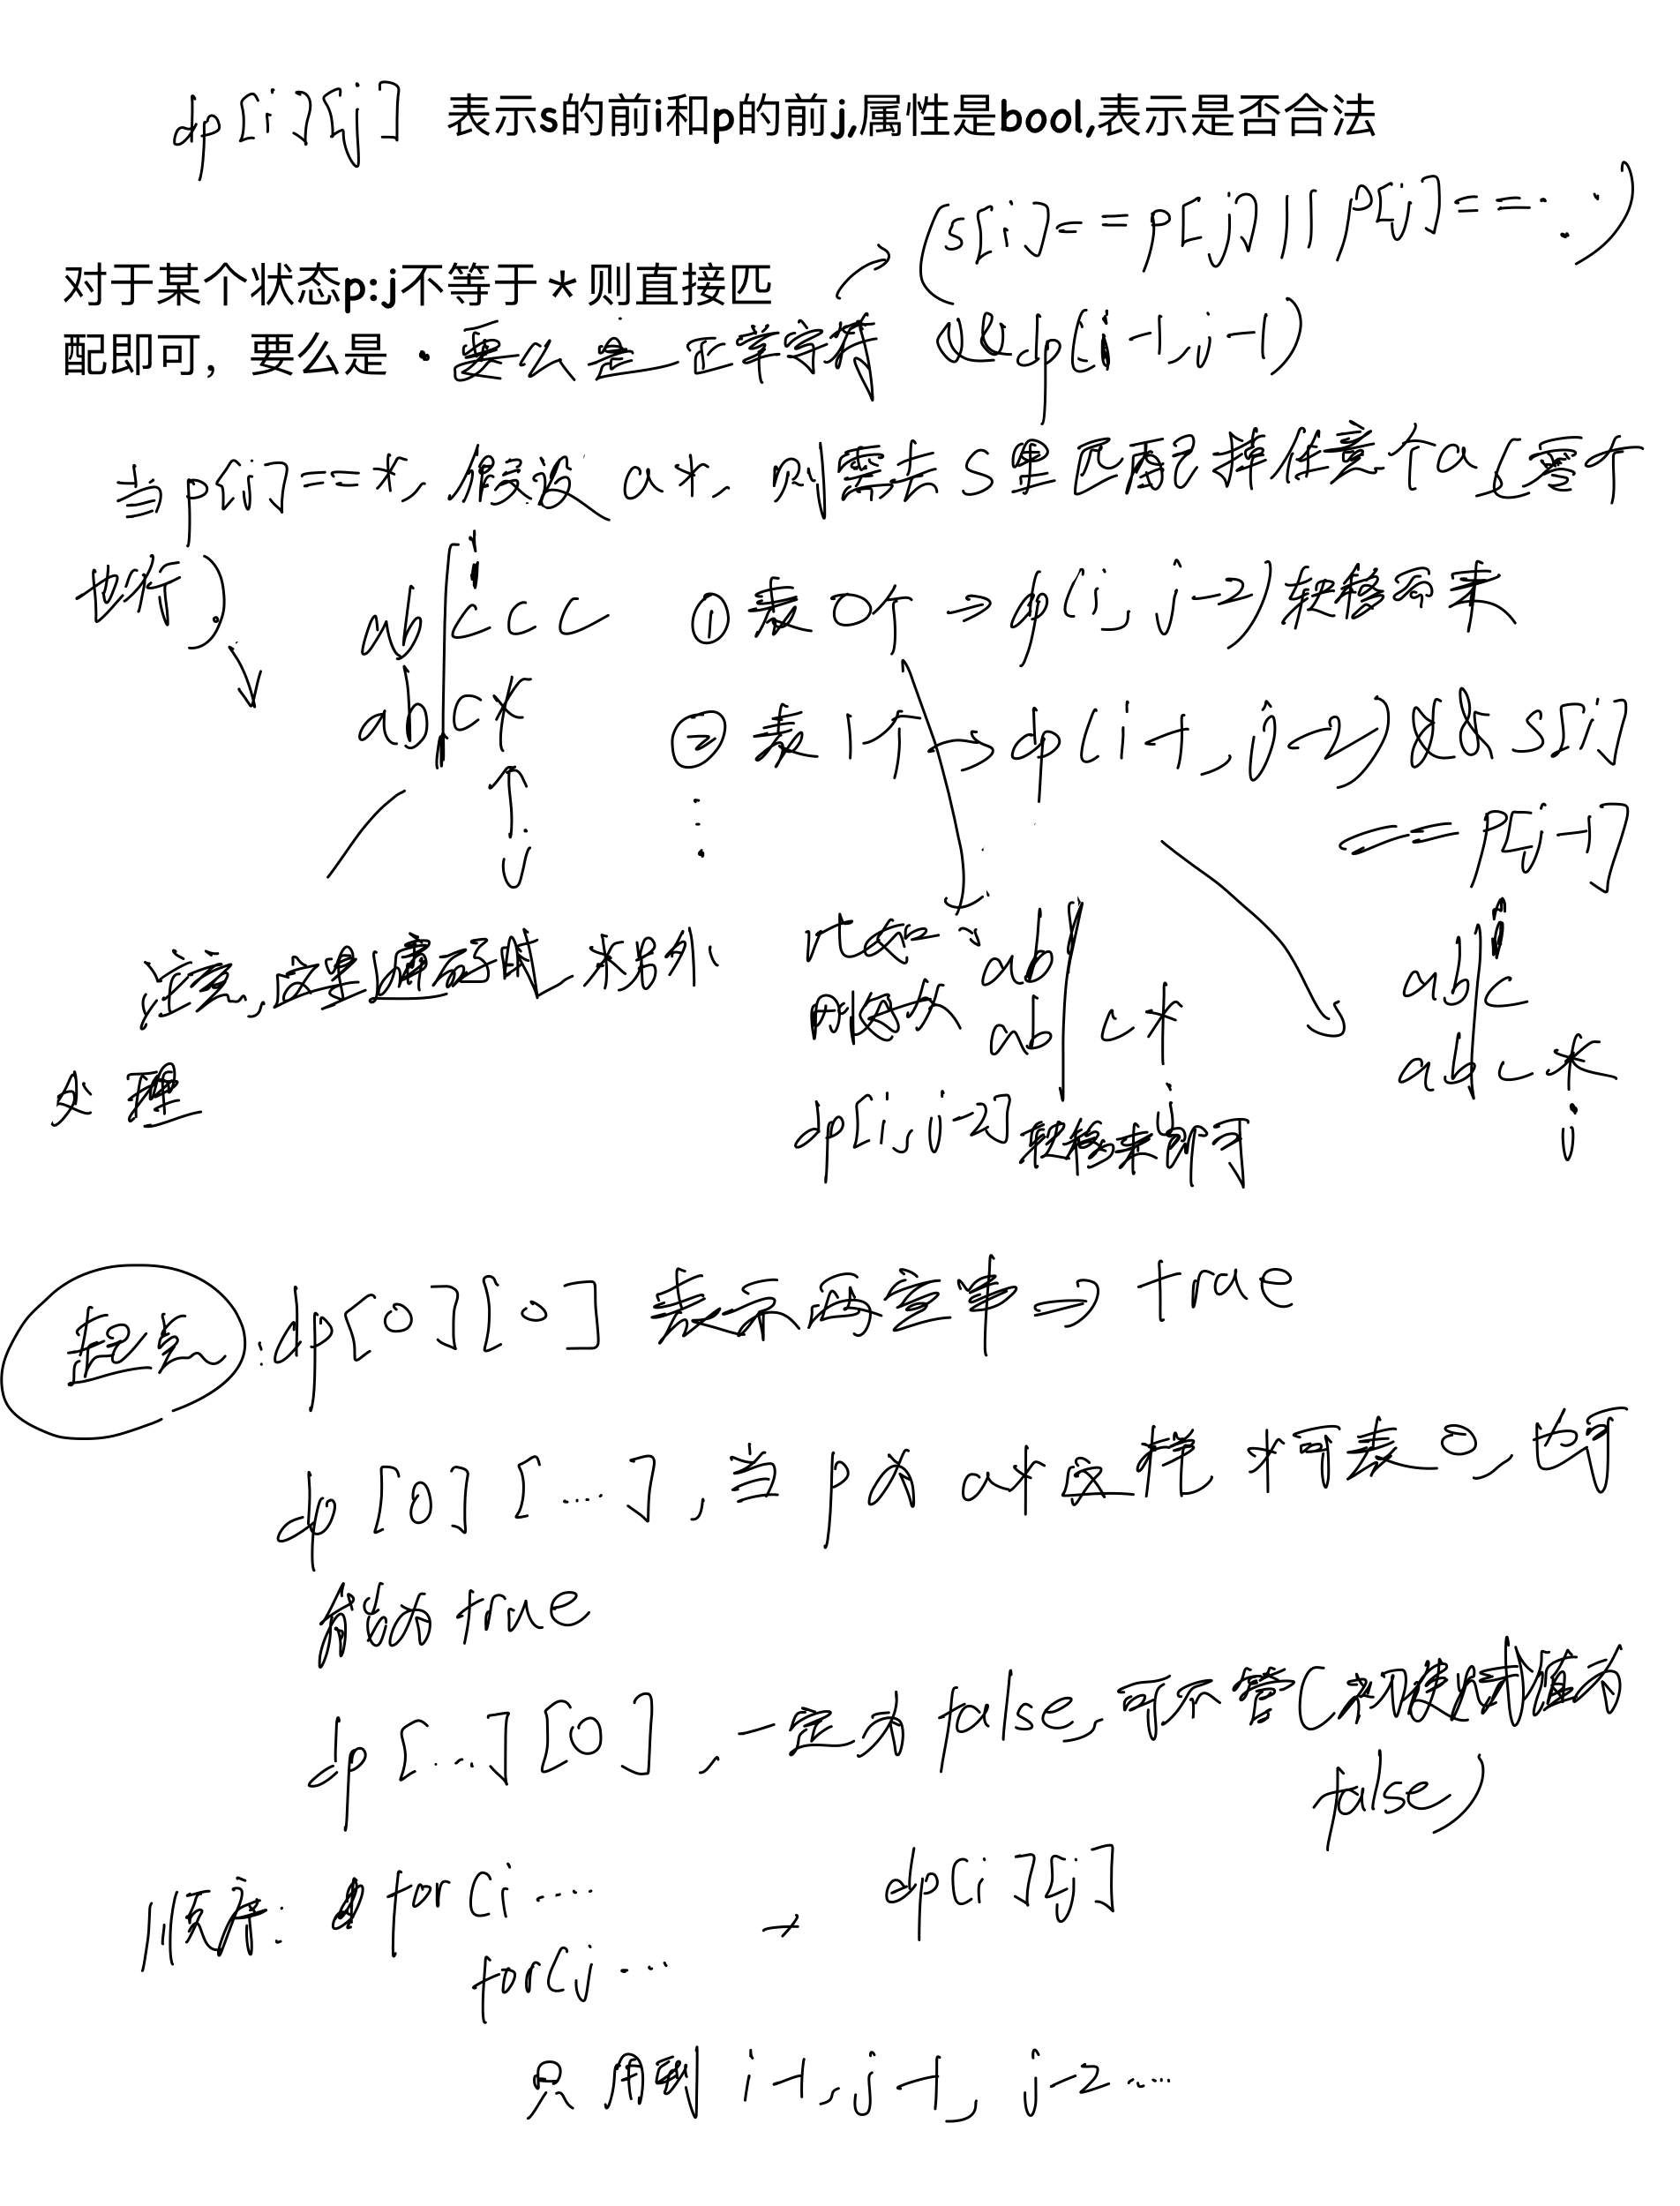 dp[i][j] 表示s的前i和p的前j,属性是bool,表示是否合法
(s[i]==p[j]||p[j]=='.')
对于某个状态p:j不等于*则直接匹
配即可，要么是 · 要么是正常字符 &&dp(i-1,j-1)
当p[j]==*,假设a*,则需去s里匹配掉任意个a(零个
也行).
i
ab|ccc ①表0个→dp(i,j-2)转移而来
ab|c* ②表1个→dp(i-1,j-2)&&s[i]
==p[j-1]
⋮
j
注意,这里 * 另外
处理
比如: ab|
刚好为 ab|c*
j
dp[i,j-2]转移来即可
i
ab|c
ab|c*
j
起点:dp[0][0] 表示两空串→true
dp[0][....],当p为a*这样*可表0,也可
能为true
dp[...][0],一定为false,可不管(初使赋值为
false)
顺序: for(i.... → dp[i][j]
for(j....
只用到 i-1,j-1, j-2....